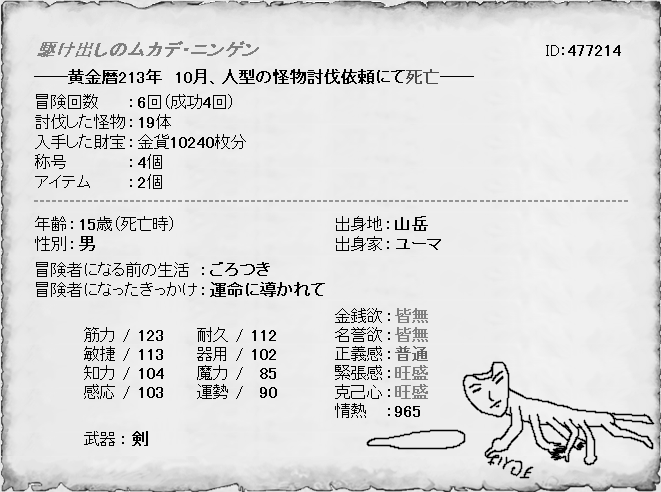 駆け出しのムカデ・ニンゲン ID:477214
――黄金暦213年　10月、人型の怪物討伐依頼にて死亡――
冒険回数　：6回(成功4回)
討伐した怪物：19体
入手した財宝：金貨10240枚分
称号　：4個
アイテム　：2個
年齢：15歳(死亡時)　出身地：山岳
性別：男　出身家：ユーマ
冒険者になる前の生活　：ごろつき
冒険者になったきっかけ：運命に導かれて
金銭欲：皆無
筋力 / 123　耐久 / 112　名誉欲：皆無
敏捷 / 113　器用 / 102　正義感：普通
知力 / 104　魔力 / 85　緊張感：旺盛
感応 / 103　運勢 / 90　克己心：旺盛
情熱　：965
武器：剣